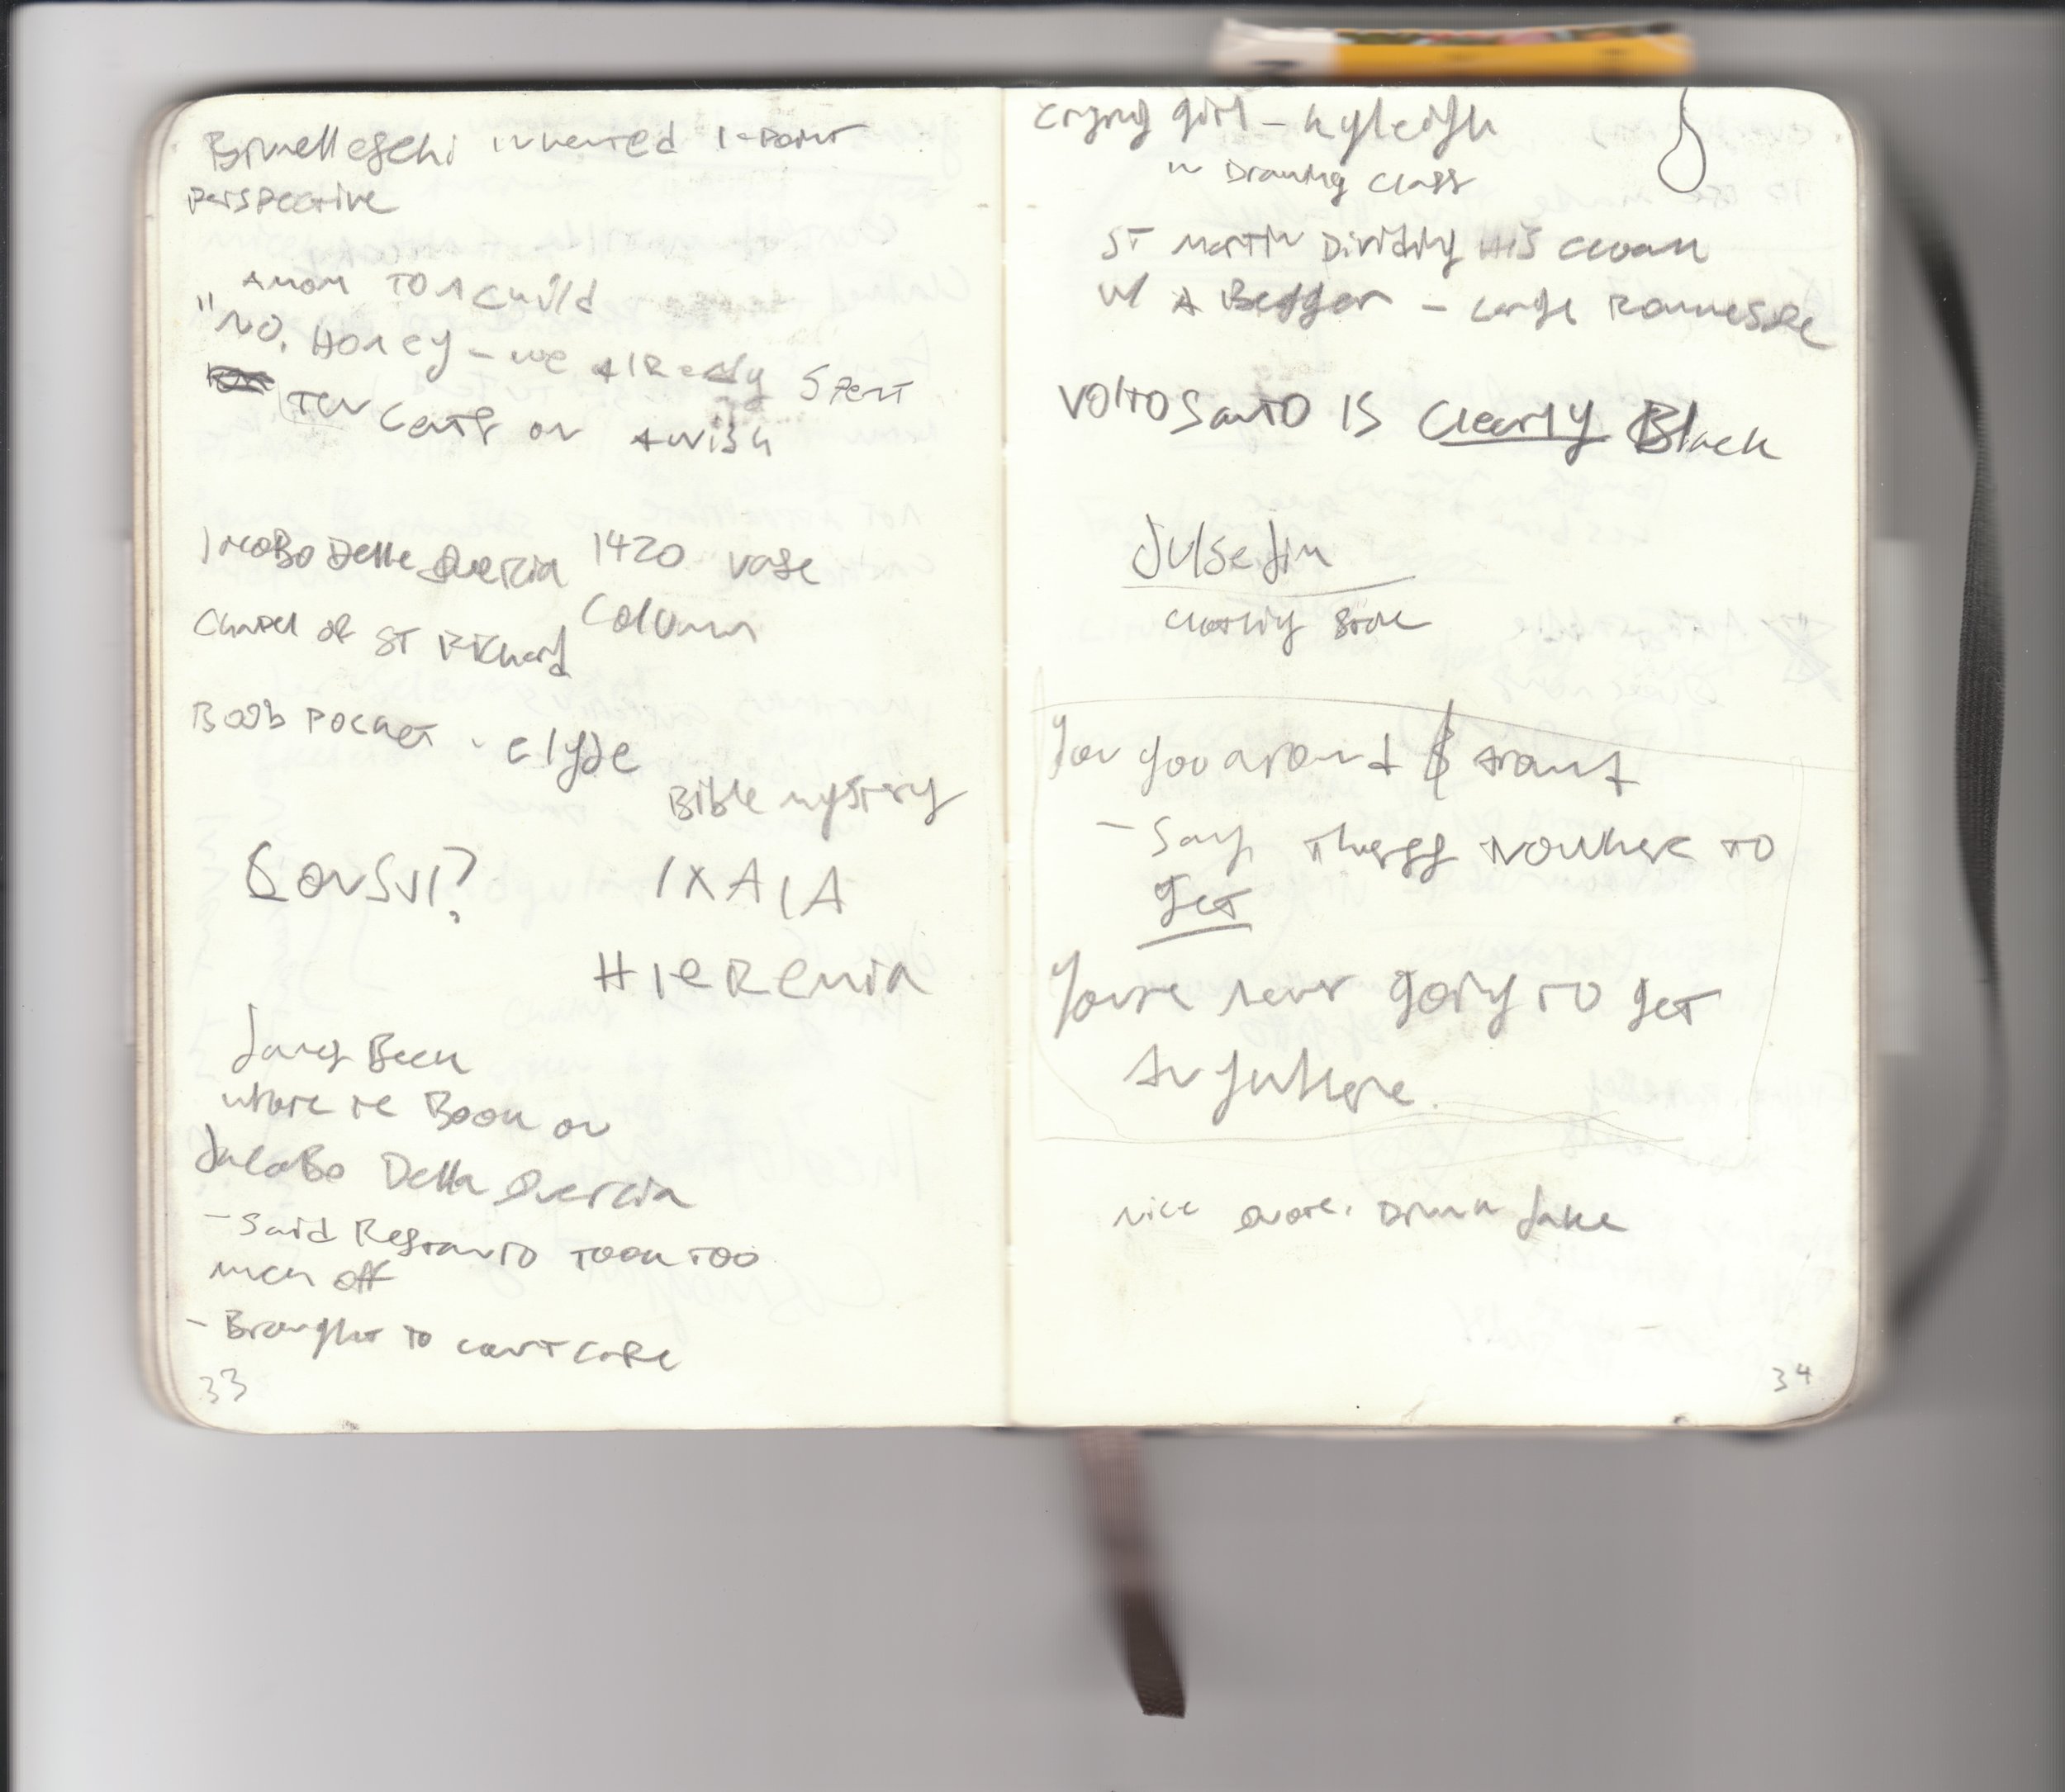 Brunelleschi invented 1-point
perspective
A mom TO A child
"NO, Honey – we Already Spent
Ten Cents on A wish
Iacobo Della Quercia 1420 vase
Column
Chapel of ST Richard
Boob Pocket - Clyde
Bible mystery
Consul?
IXAIA
HIEREMIA
James Beck
wrote the Book on
Jacobo Della Quercia
- Said Restauro Took Too
much off
- Brought to court case
33
crying girl – Kyleigh
in Drawing Class
ST Martin Dividing HIS cloak
w/ A Beggar – Large Romanesque
Volto Santo IS Clearly Black
Julsejin
clothing store
You goo around &amp; around
- Say, theres Nowhere TO
get
Youre never going TO get
Anywhere.
nice quote. Drunk Jake
34